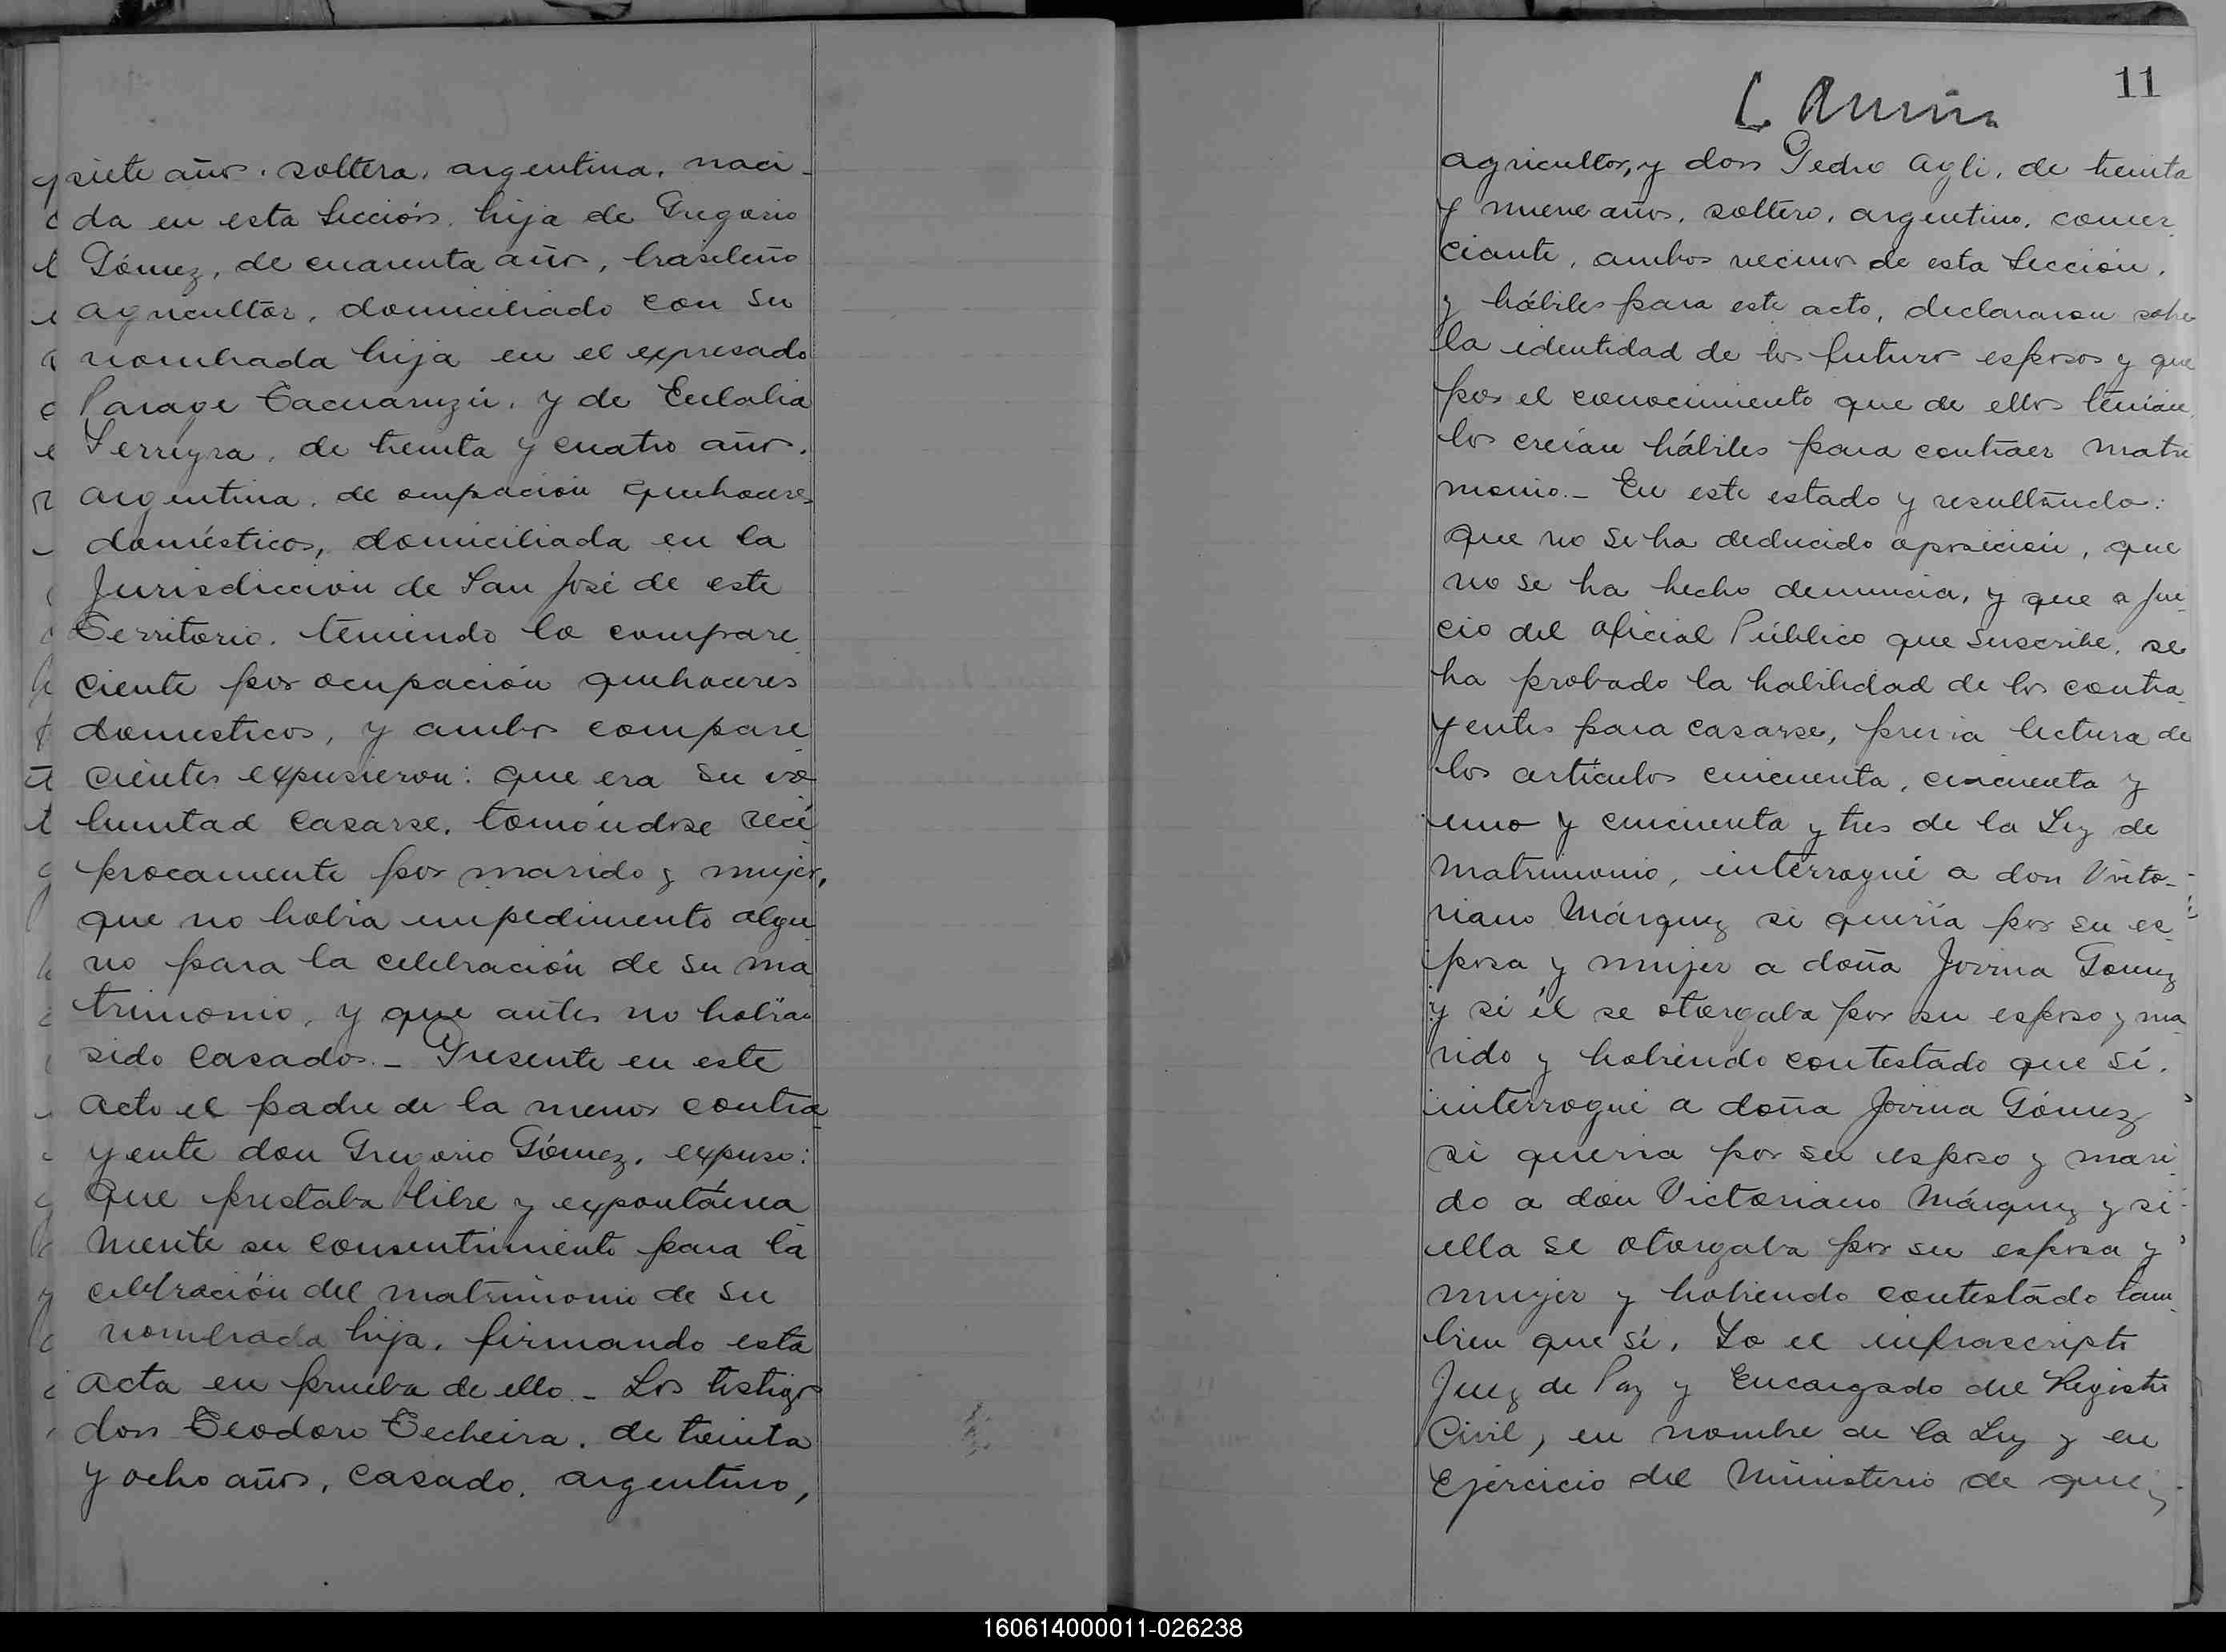 y siete años, soltera, argentina, naci-
da en esta Sección, hija de Gregorio
Gómez, de cuarenta años, brasileño
agricultor, domiciliado con su
nombrada hija en el expresado
Parage Tacuaruzú, y de Eulalia
Ferreyra, de treinta y cuatro años,
argentina, de ocupación quehaceres
domésticos, domiciliada en la
Jurisdicción de San José de este
Territorio, teniendo la compare
ciente por ocupación quehaceres
domesticos, y ambos compare
cientes expusieron: que era su vo
luntad casarse, tomándose recí
procamente por marido y mujer,
que no había impedimento algu
no para la celebración de su ma
trimonio, y que antes no habían
sido casados.- Presente en este
acto el padre de la menor contra
yente don Gregorio Gómez, expuso:
que prestaba libre y expontánea
mente su consentimiento para la
celebración del matrimonio de su
nombrada hija, firmando esta
acta en prueba de ello.- Los testigos
don Teodoro Techeira, de treinta
y ocho años, casado, argentino,
11
agricultor, y don Pedro Agli, de treinta
y nueve años, soltero, argentino, comer
ciante, ambos vecinos de esta Sección,
y hábiles para este acto, declararon sobre
la identidad de los futuros esposos y que
por el conocimiento que de ellos tenían,
los creían hábiles para contraer matri
monio.- En este estado y resultando:
que no se ha deducido oposición, que
no se ha hecho denuncia, y que a jui
cio del oficial Público que suscribe, se
ha probado la habilidad de los contra
yentes para casarse, previa lectura de
los artículos cincuenta, cincuenta y
uno y cincuenta y tres de la Ley de
matrimonio, interrogué a don Victo-
riano Márquez si quería por su es-
posa y mujer a doña Jovina Gomez
y si él se otorgaba por su esposo y ma
rido y habiendo contestado que sí,
interrogué a doña Jovina Gómez
si queria por su esposo y mari
do a don Victoriano Márquez y si
ella se otorgaba por su esposa y
mujer y habiendo contestado tam
bien que sí, Yo el infrascripto
Juez de Paz y Encargado del Registro
Civil, en nombre de la Ley y en
Ejercicio del Ministerio de que
160614000011-026238